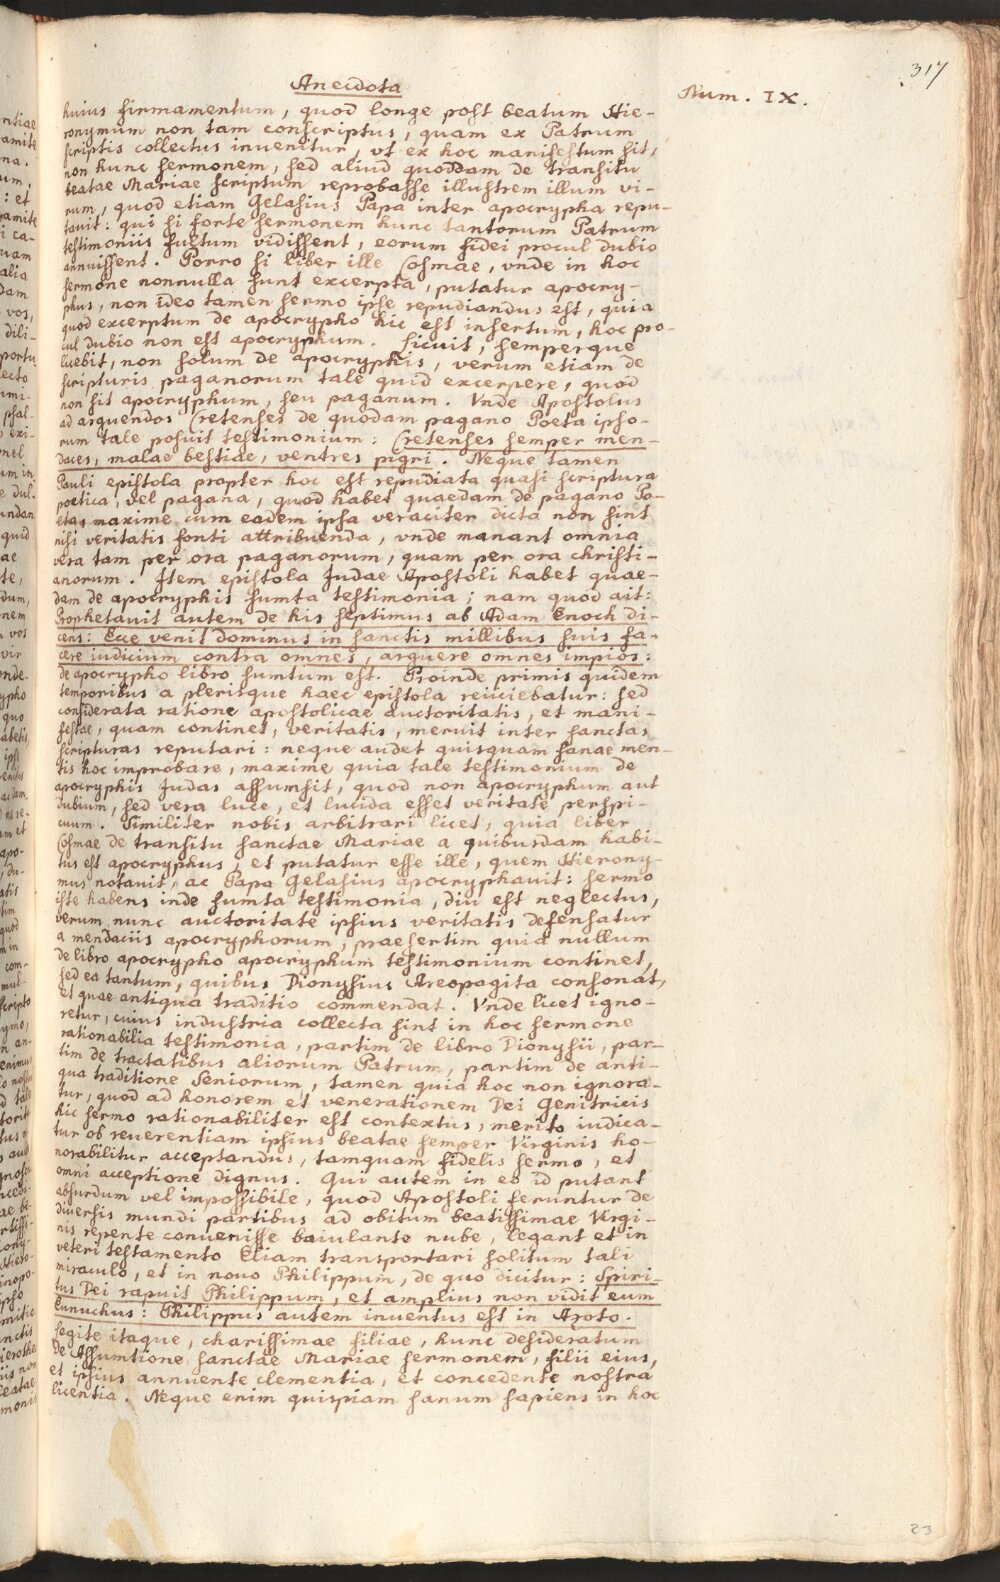 317
Anecdota
Num. IX.
huius firmamentum, quod longe post beatum Hie-
ronymum non tam conscriptus, quam ex Patrum
scriptis collectus inuenitur, vt ex hoc manifestum sit,
non hunc sermonem, sed aliud quoddam de transitu
beatae Mariae scriptum reprobasse illustrem illum vi-
rum, quod etiam Gelasius Papa inter apocrypha repu-
tauit: qui si forte sermonem hunc tantorum Patrum
testimoniis fultum vidissent, eorum fidei procul dubio
annuissent. Porro si liber ille Cosmae, vnde in hoc
sermone nonnulla sunt excerpta, putatur apocry-
phus, non ideo tamen sermo ipse repudiandus est, quia
quod excerptum de apocrypho hic est insertum, hoc pro-
cul dubio non est apocryphum. Licuit, semperque
licebit, non solum de apocryphis, verum etiam de
scripturis paganorum tale quid excerpere, quod
non sit apocryphum, seu paganum. Vnde Apostolus
ad arguendos Cretenses de quodam pagano Poeta ipso-
rum tale posuit testimonium: Cretenses semper men-
daces, malae bestiae, ventres pigri. Neque tamen
Pauli epistola propter hoc est repudiata quasi scriptura
poetica, vel pagana, quod habet quaedam de pagano Po-
eta, maxime cum eadem ipsa veraciter dicta non sint
nisi veritatis fonti attribuenda, vnde manant omnia
vera tam per ora paganorum, quam per ora christi-
anorum. Item epistola Judae Apostoli habet quae-
dam de apocryphis sumta testimonia; nam quod ait:
Prophetauit autem de his septimus ab Adam Enoch di-
cens: Ecce venit dominus in sanctis millibus suis fa-
cere iudicium contra omnes, arguere omnes impios:
de apocrypho libro sumtum est. Proinde primis quidem
temporibus a plerisque haec epistola reiiciebatur: sed
considerata ratione apostolicae auctoritatis, et mani-
festae, quam continet, veritatis, meruit inter sanctas
scripturas reputari: neque audet quisquam sanae men-
tis hoc improbare, maxime quia tale testimonium de
apocryphis Judas assumsit, quod non apocryphum aut
dubium, sed vera luce, et lucida esset veritate perspi-
cuum. Similiter nobis arbitrari licet, quia liber
Cosmae de transitu sanctae Mariae a quibusdam habi-
tus est apocryphus, et putatur esse ille, quem Hierony-
mus notauit, ac Papa Gelasius apocryphauit: sermo
iste habens inde sumta testimonia, diu est neglectus,
verum nunc auctoritate ipsius veritatis defensatur
a mendaciis apocryphorum, praesertim quia nullum
de libro apocrypho apocryphum testimonium continet,
sed ea tantum, quibus Dionysius Areopagita consonat,
et quae antiqua traditio commendat. Vnde licet igno-
retur, cuius industria collecta sint in hoc sermone
rationabilia testimonia, partim de libro Dionysii, par-
tim de tractatibus aliorum Patrum, partim de anti-
qua traditione Seniorum, tamen quia hoc non ignora-
tur, quod ad honorem et venerationem Dei Genitricis
hic sermo rationabiliter est contextus, merito iudica-
tur ob reuerentiam ipsius beatae semper Virginis ho-
norabilitur acceptandus, tamquam fidelis sermo, et
omni acceptione dignus. Qui autem in eo id putant
absurdum vel impossibile, quod Apostoli feruntur de
diuersis mundi partibus ad obitum beatissimae Virgi-
nis repente conuenisse baiulante nube, legant et in
veteri testamento Eliam transportari solitum tali
miraculo, et in nouo Philippum, de quo dicitur: Spiri-
tus Dei rapuit Philippum, et amplius non vidit eum
Eunuchus: Philippus autem inuentus est in Azoto.
Legite itaque, charissimae filiae, hunc desideratum
de Assumtione sanctae Mariae sermonem, filii eius,
et ipsius annuente clementia, et concedente nostra
licentia. Neque enim quispiam sanum sapiens in hoc
23